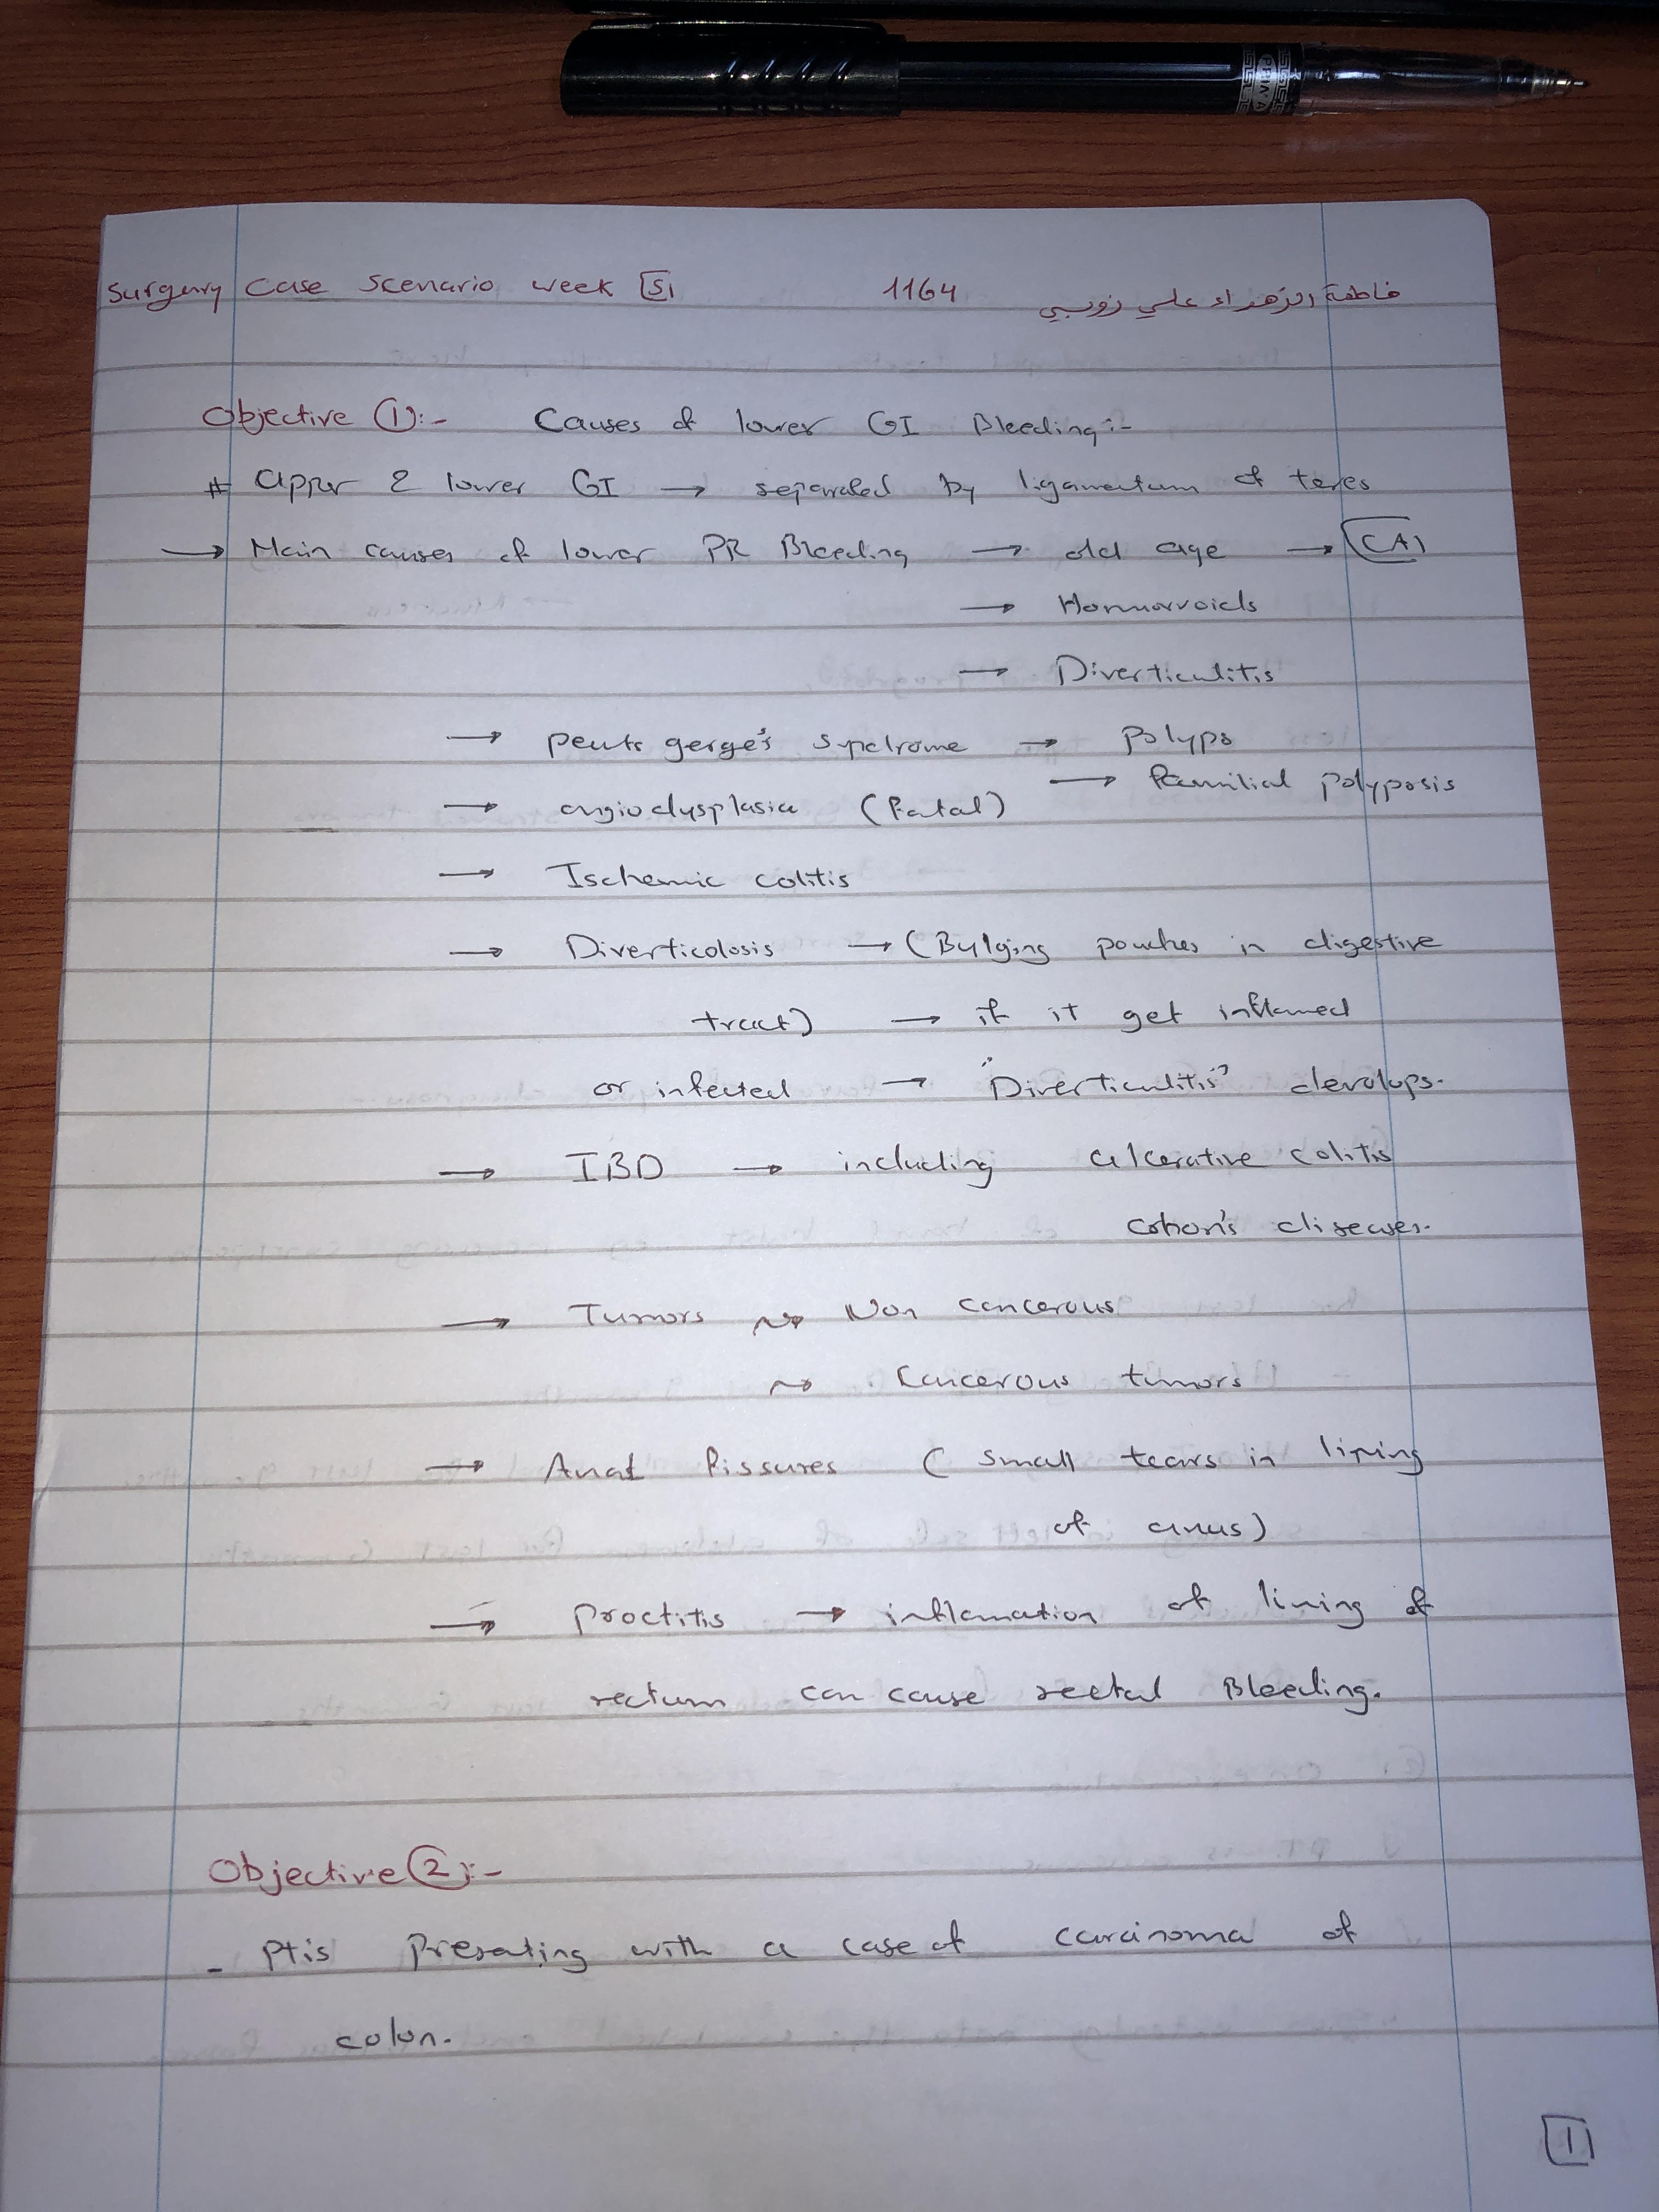 Surgery Case Scenario week 5 1164 فاطمة الزهراء علي زوبي
Objective ①:- Causes of lower GI Bleeding:-
# upper & lower GI → separated by ligamentum of teres
→ Main causes of lower PR Bleeding → old age → CA
→ Hommorroids
→ Diverticulitis
→ peuts gerge's syndrome → Polyps
→ Familial polyposis
→ angiodysplasia (Fatal)
→ Ischemic colitis
→ Diverticolosis → (Bulging pouches in digestive
tract) → if it get inflamed
or infected → "Diverticulitis" devolops.
→ IBD → including ulcerative colitis
cohon's diseases.
→ Tumors ⇝ Non cancerous
⇝ Cancerous tumors
→ Anal fissures (small tears in lining
of anus)
→ Proctitis → inflamation of lining of
rectum can cause rectal Bleeding.
Objective ②:-
- Pt is Presenting with a case of carcinoma of
colon.
1